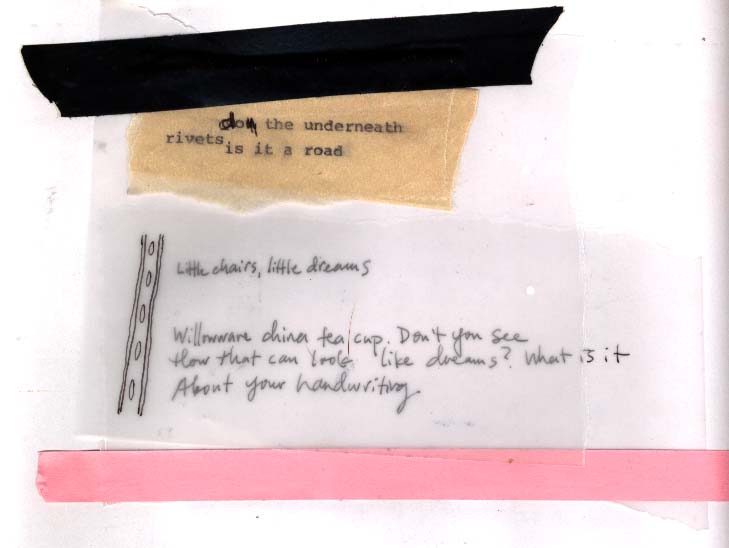 on the underneath
rivets is it a road
Little chairs, little dreams
Willowware china tea cup. Don't you see
How that can look like dreams? What is it
About your handwriting